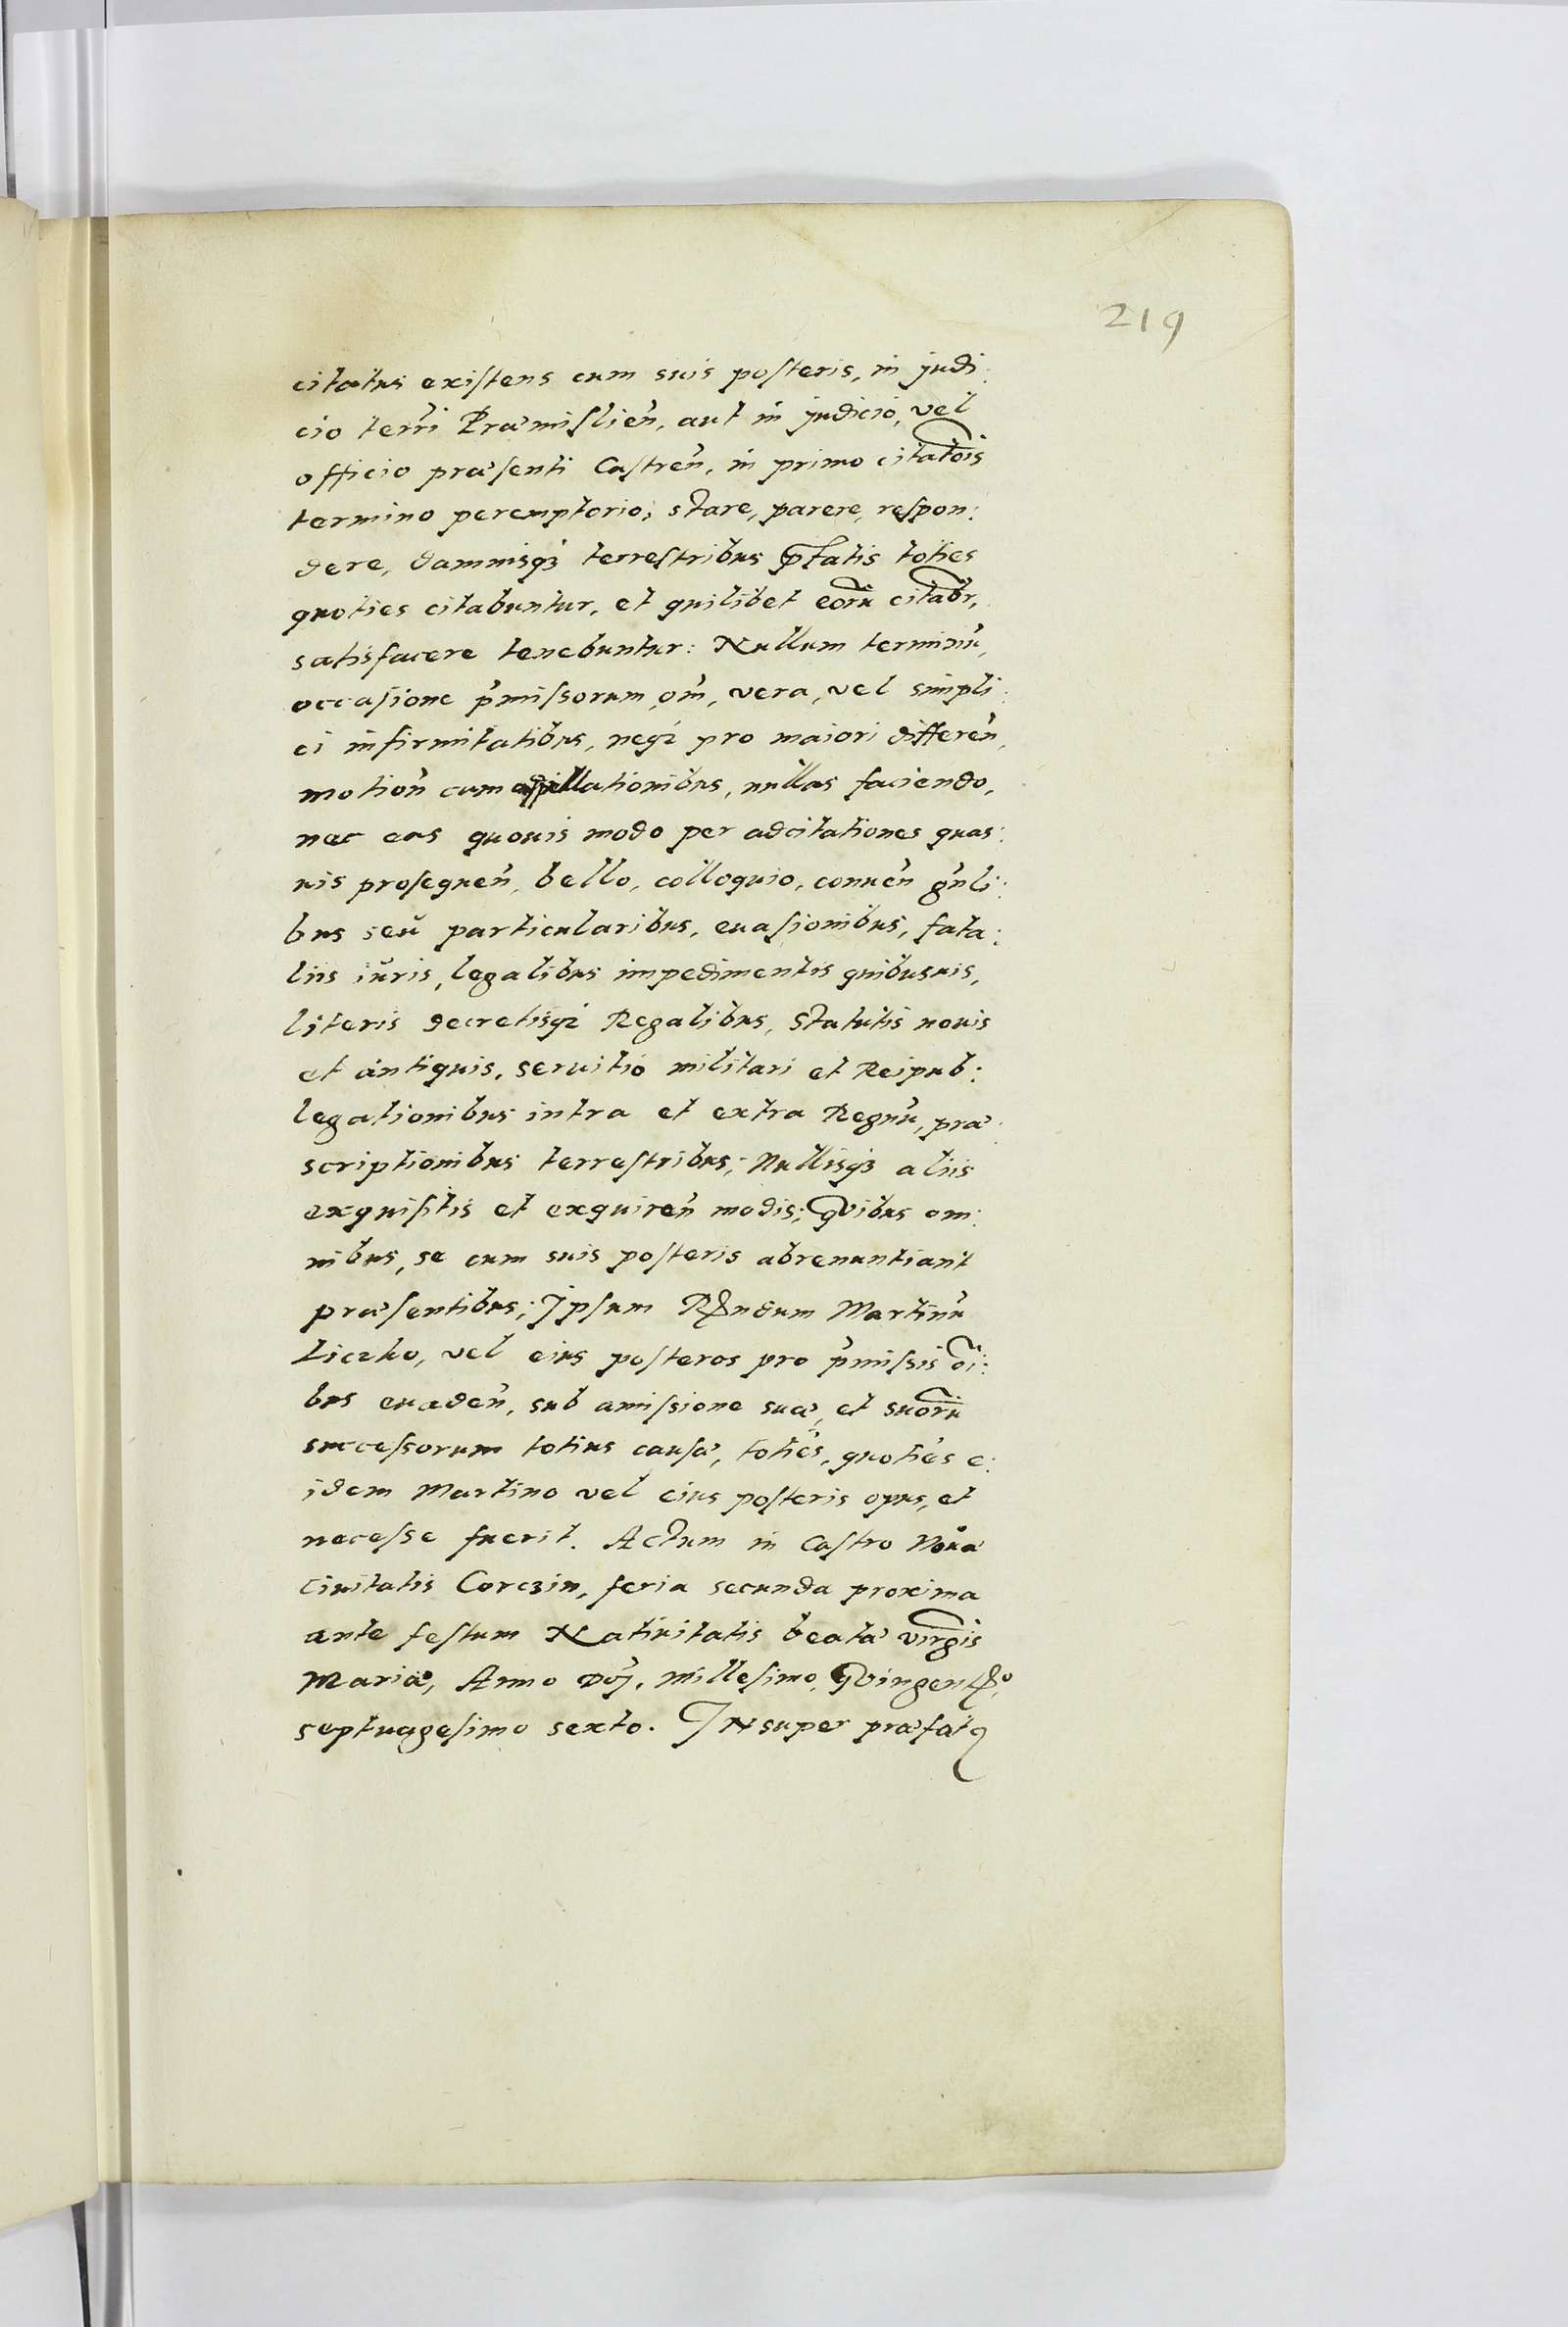 219
citatus existens cum suis posteris, in judi:
cio terri Præmislien̄, aut in judicio, vel
officio præsenti Castren̄, in primo citatōis
termino peremptorio, stare, parere, respon:
dere, damnisqꝫ terrestribus p̄fatis toties
quoties citabuntur, et quilibet eorū citabr̄,
satisfacere tenebuntur: Nullum terminū,
occasione p̄missorum om̄, vera, vel simpli:
ci infirmitatibus, neqꝫ pro maiori differen̄,
motion̄ cum appellationibus, nullas faciendo,
nec eas quouis modo per adcitationes quas:
uis prosequen̄, bello, colloquio, conuen̄ gn̄li:
bus seu particularibus, euasionibus, fata:
liis iuris, legalibus impedimentis quibusuis,
literis decretisqꝫ Regalibus, Statutis nouis
et antiquis, seruitio militari et Reipub:
legationibus intra et extra Regnū, præ:
scriptionibus terrestribus; Nullisqꝫ aliis
exquisitis et exquiren̄ modis; Quibus om:
nibus, se cum suis posteris abrenuntiant
præsentibus; Ipsum Rn̄dum Martinū
Liczko, vel eius posteros pro p̄missis oī:
bus euaden̄, sub amissione suæ, et suorū
successorum totius causæ, toties, quoties e:
idem Martino vel eius posteris opus, et
necesse fuerit. Actum in Castro Nouæ
Ciuitatis Corczin, feria secunda proxima
ante festum Natiuitatis beatæ virgīs
Mariæ, Anno Doī. Millesimo, Quingenᵐᵒ,
septuagesimo sexto. INsuper præfatꝰ